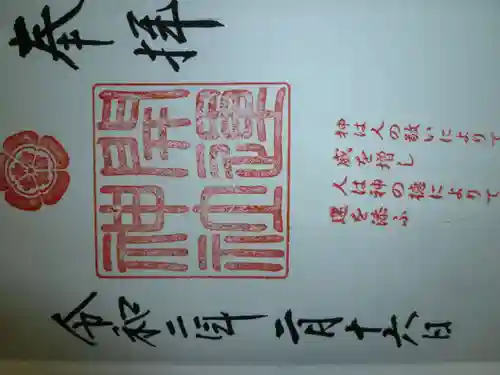 奉拝
開運
神社
神は人の敬いによりて
威を増し
人は神の徳によりて
運を添ふ
令和二年二月十六日